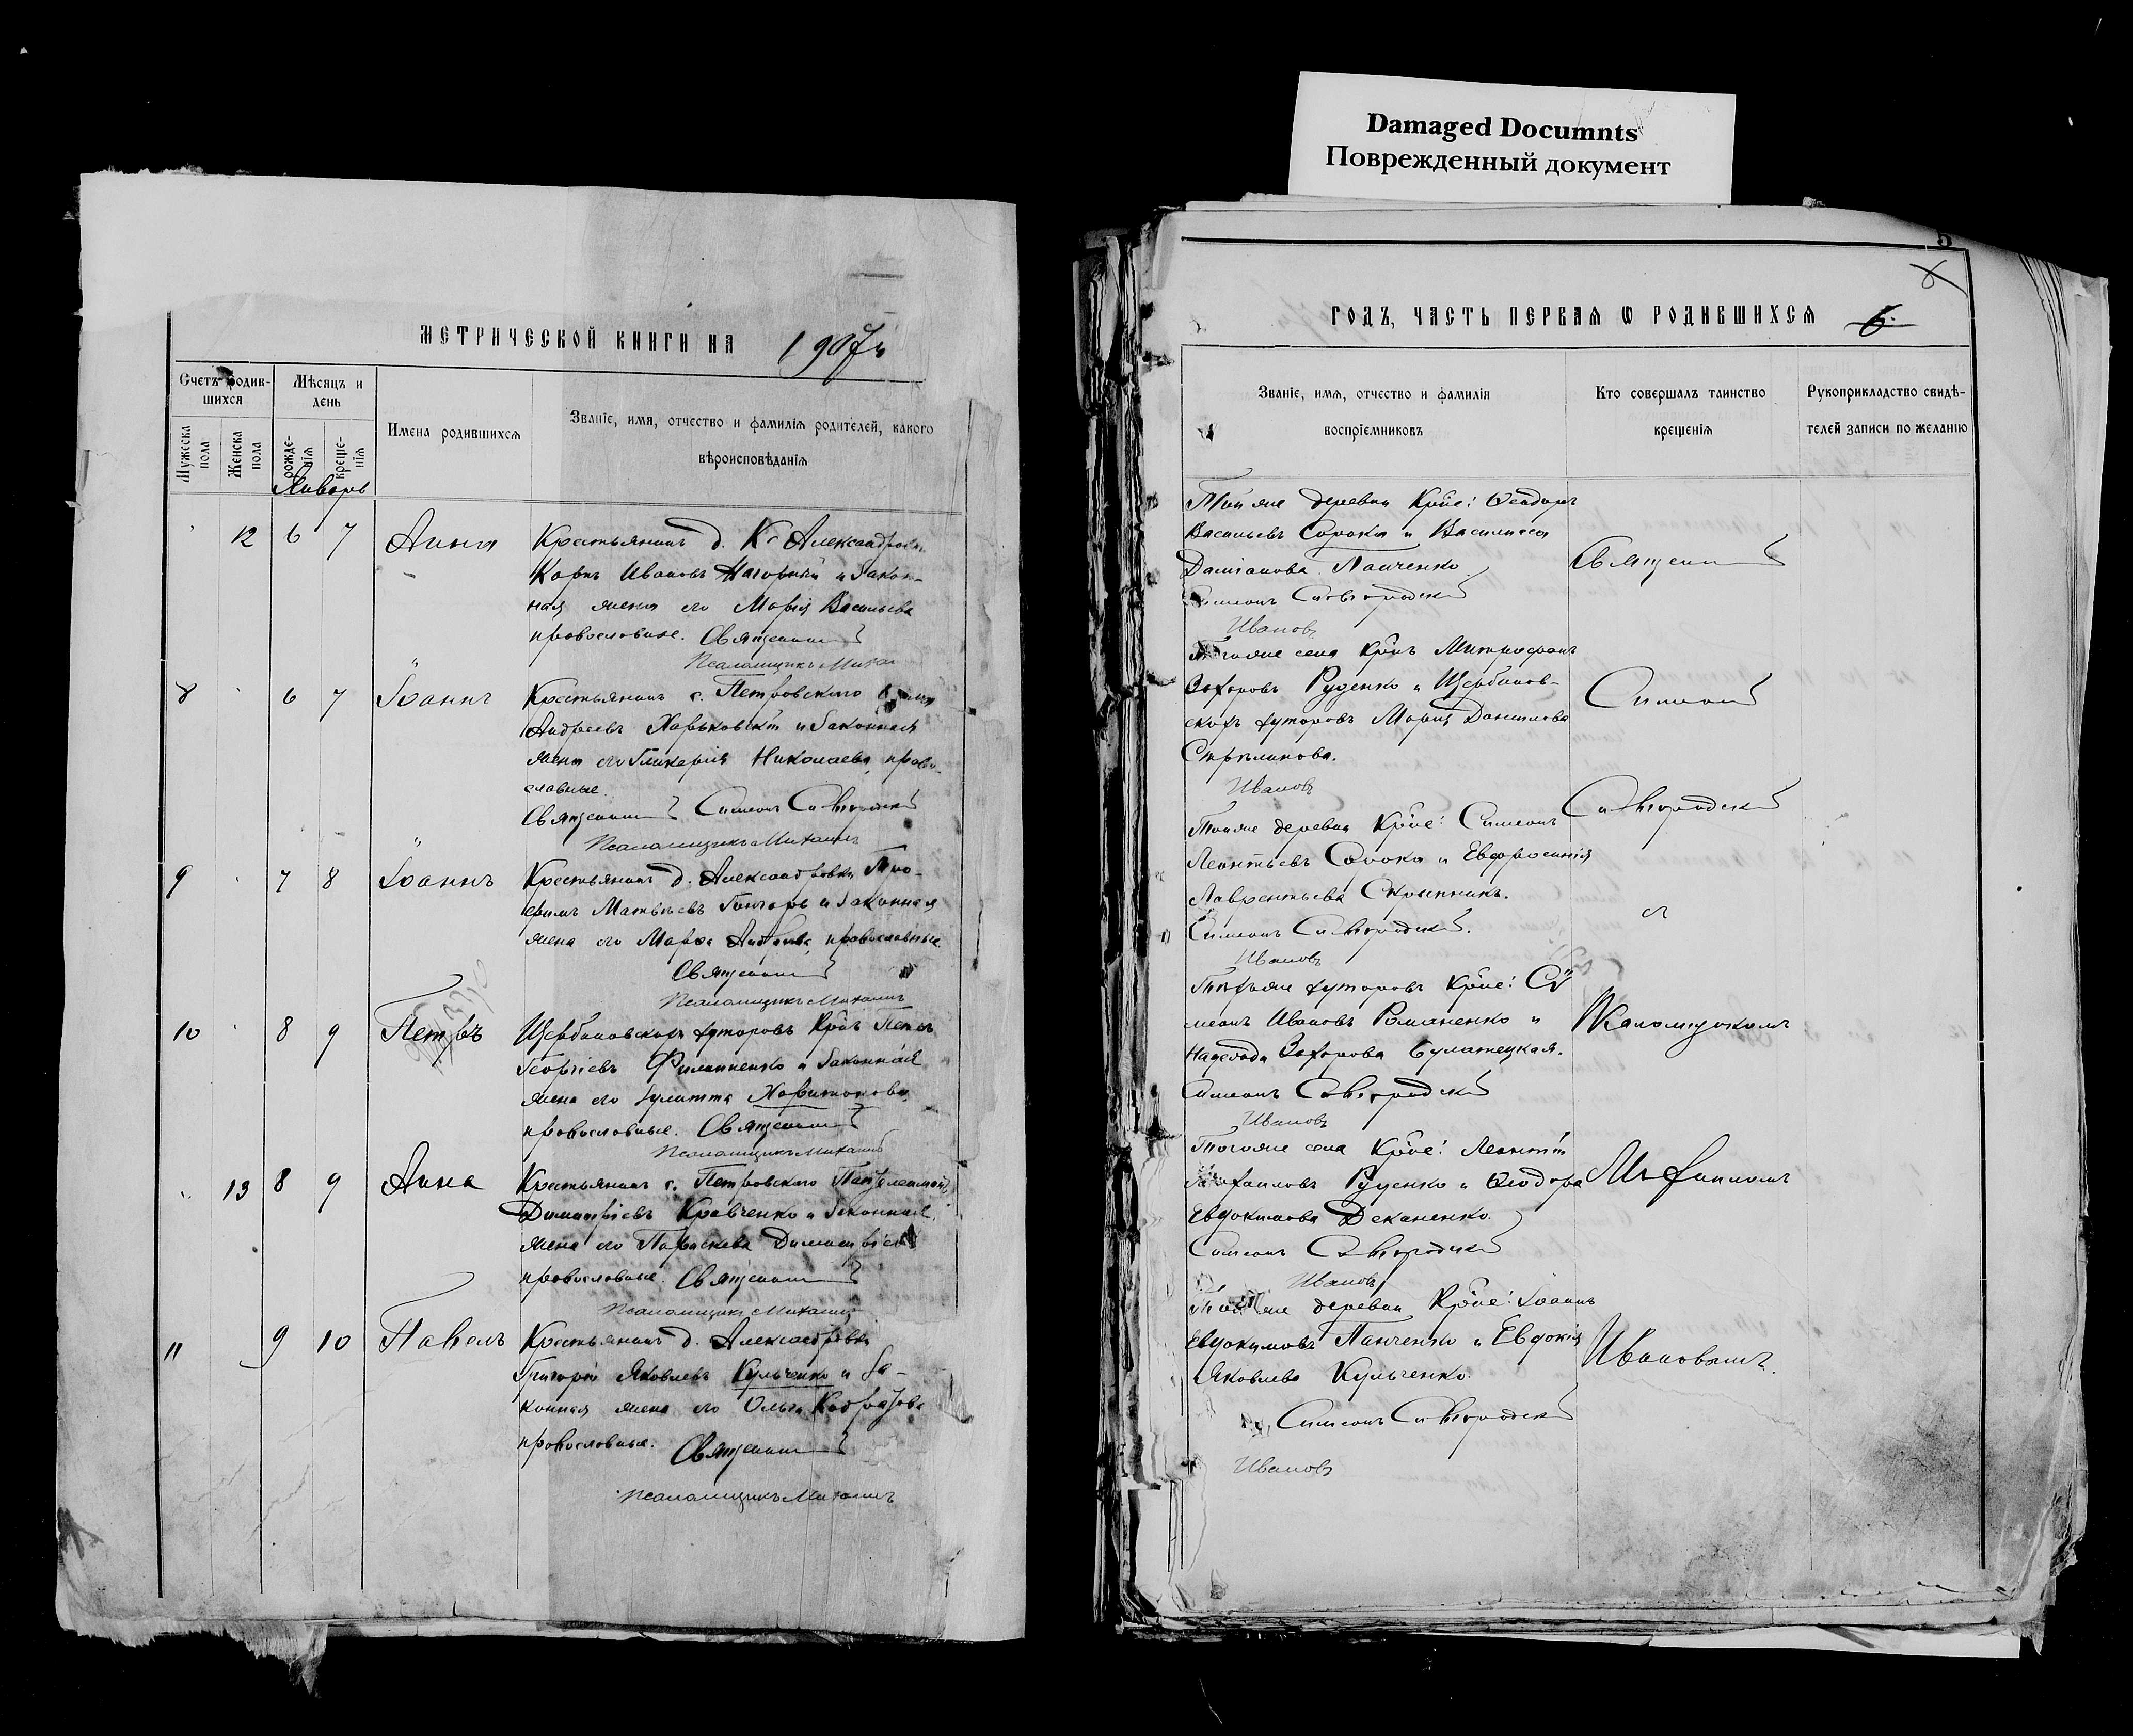 Damaged Documnts
Поврежденный документ
МЕТРИЧЕСКОЙ КНИГИ НА 1907 г.
Счетъ родив-
шихся
Мѣсяцъ и
день
Имена родившихся
Званіе, имя, отчество и фамилія родителей, какого
вѣроисповѣданія
Мужеска
пола
Женска
пола
рожде-
нія
креще-
нія
Январь
12 6 7 Анна
Крестьянинъ д. Александровки
Карпъ Ивановъ Нагорный и закон-
ная жена его Марія Васильева
православные. Священникъ
Псаломщикъ Михаилъ
8 6 7 Іоаннъ
Крестьянинъ с. Петровскаго
Андреевъ Харьковскій и законная
жена его Гликерія Николаева, право-
славные.
Священникъ Симеонъ
Псаломщикъ Михаилъ
9 7 8 Іоаннъ
Крестьянинъ д. Александровки Тро-
фимъ Матвѣевъ Гончаръ и законная
жена его Марѳа православные
Священникъ
Псаломщикъ Михаилъ
10 8 9 Петръ
Щербановскихъ хуторовъ Кр̃нъ Петръ
Георгіевъ Филипенко и законная
жена его Іулитта Харитонова,
православные. Священникъ
Псаломщикъ Михаилъ
13 8 9 Анна
Крестьянинъ с. Петровскаго Пантелеимонъ
Димитріевъ Кравченко и законная
жена его Параскева Димитріева
православные. Священникъ
Псаломщикъ Михаилъ
11 9 10 Павелъ
Крестьянинъ д. Александровки
Григорій Яковлевъ Кульченко и за-
конная жена его Ольга
православные. Священникъ
Псаломщикъ Михаилъ
5
ГОДЪ, ЧАСТЬ ПЕРВАЯ Ѡ РОДИВШИХСЯ 6.
Званіе, имя, отчество и фамилія
воспріемниковъ
Кто совершалъ таинство
крещенія
Рукоприкладство свидѣ-
телей записи по желанію
Той же деревни Кр̃не: Ѳеодоръ
Васильевъ Сорока и Василисса
Даміанова Панченко.
Симеонъ
Ивановъ
Священникъ
Тогоже села Кр̃нъ Митрофанъ
Захаровъ Руденко и Щербанов-
скихъ хуторовъ Марія Данилова
Стрѣлинова.
Ивановъ
Симеонъ
Той же деревни Кр̃не: Симеонъ
Леонтьевъ Сорока и Евфросинія
Лаврентьева Скрыпникъ.
Симеонъ
Ивановъ
съ
Тѣхъ же хуторовъ Кр̃не: Си-
меонъ Ивановъ Романенко и
Надежда Захарова Булатецкая.
Симеонъ
Ивановъ
Псаломщикомъ
Тогоже села Кр̃не: Леонтій
Михаиловъ Руденко и Ѳеодора
Евдокимова Деканенко.
Симеонъ
Ивановъ
Михаиломъ
Той же деревни Кр̃не: Іоаннъ
Евдокимовъ Панченко и Евдокія
Яковлева Кульченко.
Симеонъ
Ивановъ
Ивановымъ.